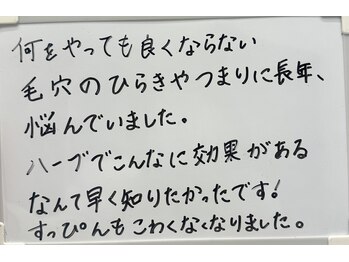 何をやっても良くならない
毛穴のひらきやつまりに長年、
悩んでいました。
ハーブでこんなに効果がある
なんて早く知りたかったです!
すっぴんもこわくなくなりました。